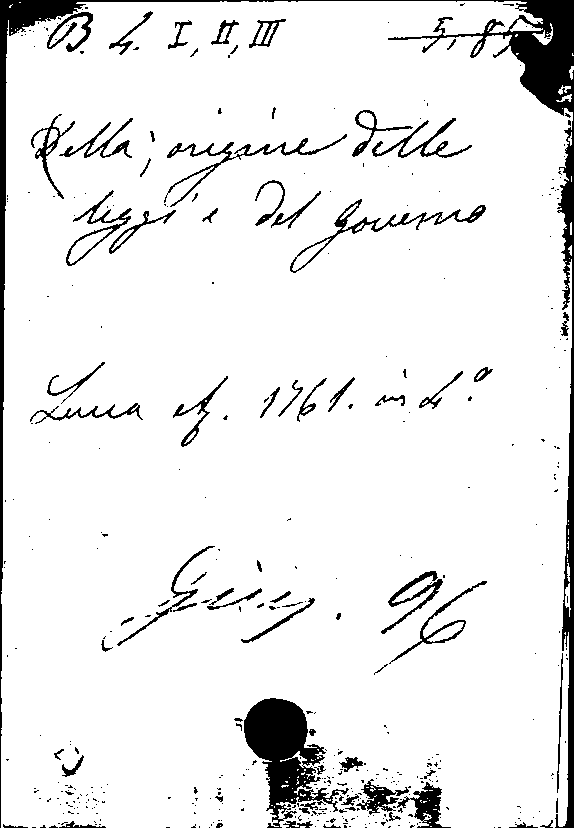 B. 4. I, II, III 5, 85
Della; origine delle
leggi e del Governo
Lucca etz. 1761. in 4.º
96